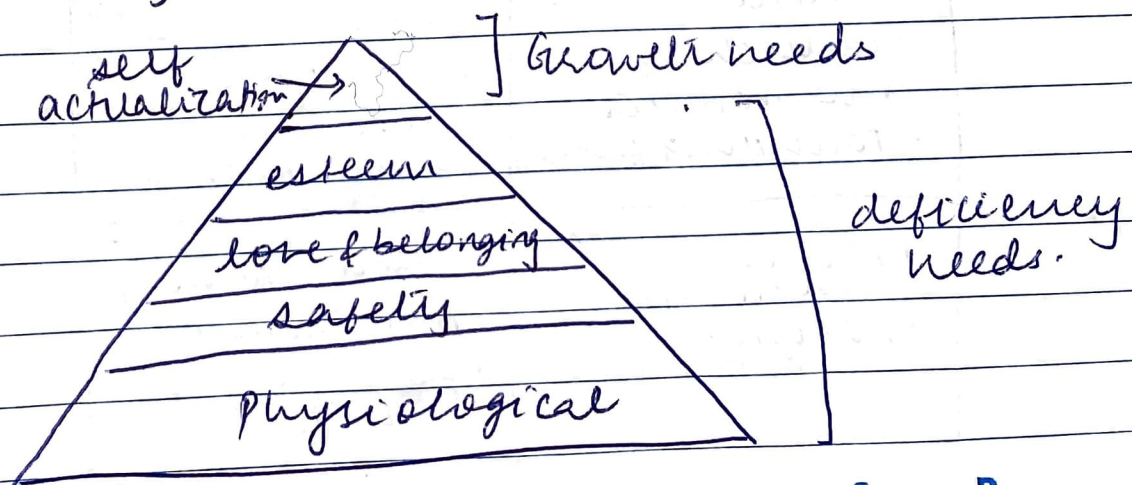 self
actualization
Growth needs
esteem
love & belonging
safety
Physiological
deficiency
needs.